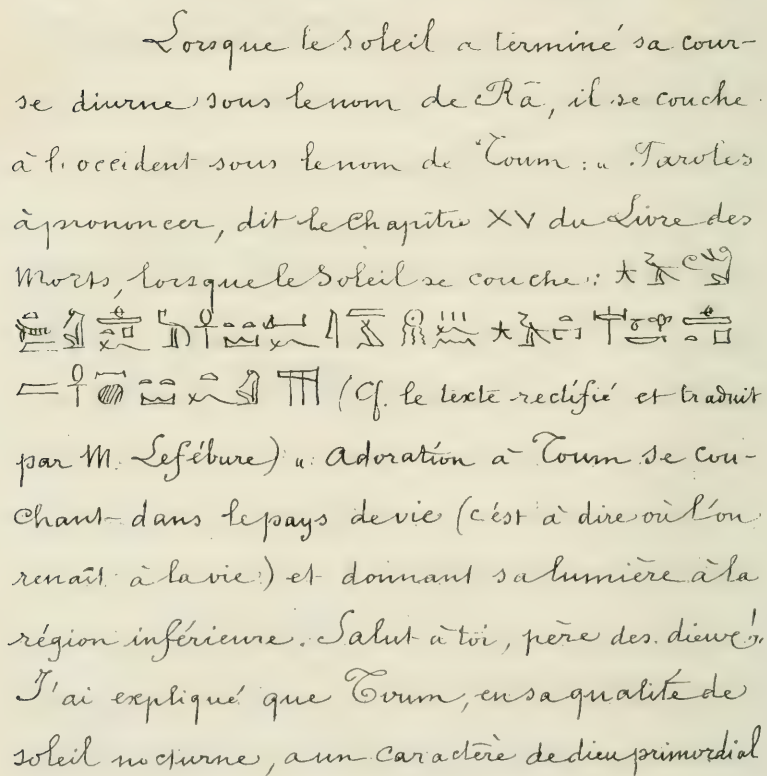 Lorsque le Soleil a terminé sa cour-
se diurne sous le nom de Râ, il se couche
à l'occident sous le nom de Toum : « Paroles
à prononcer, dit le Chapitre XV du Livre des
Morts, lorsque le Soleil se couche :
(Cf. le texte rectifié et traduit
par M. Lefébure) « Adoration à Toum se cou-
chant dans le pays de vie (c'est à dire où l'on
renaît à la vie) et donnant sa lumière à la
région inférieure. Salut à toi, père des dieux ! »
J'ai expliqué que Toum, en sa qualité de
soleil nocturne, a un caractère de dieu primordial